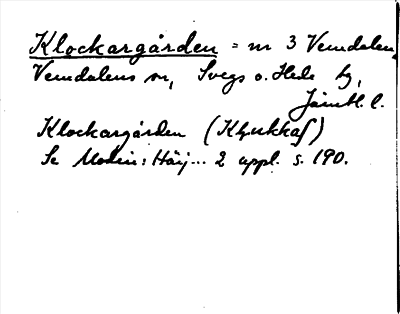 Klockargården = nr 3 Vemdalen,
Vemdalens sn, Svegs o. Hede tg,
Jämtl. l.
Klockargården (Klyukkaʃ)
Se Modin: Härj... 2 uppl. s. 190.